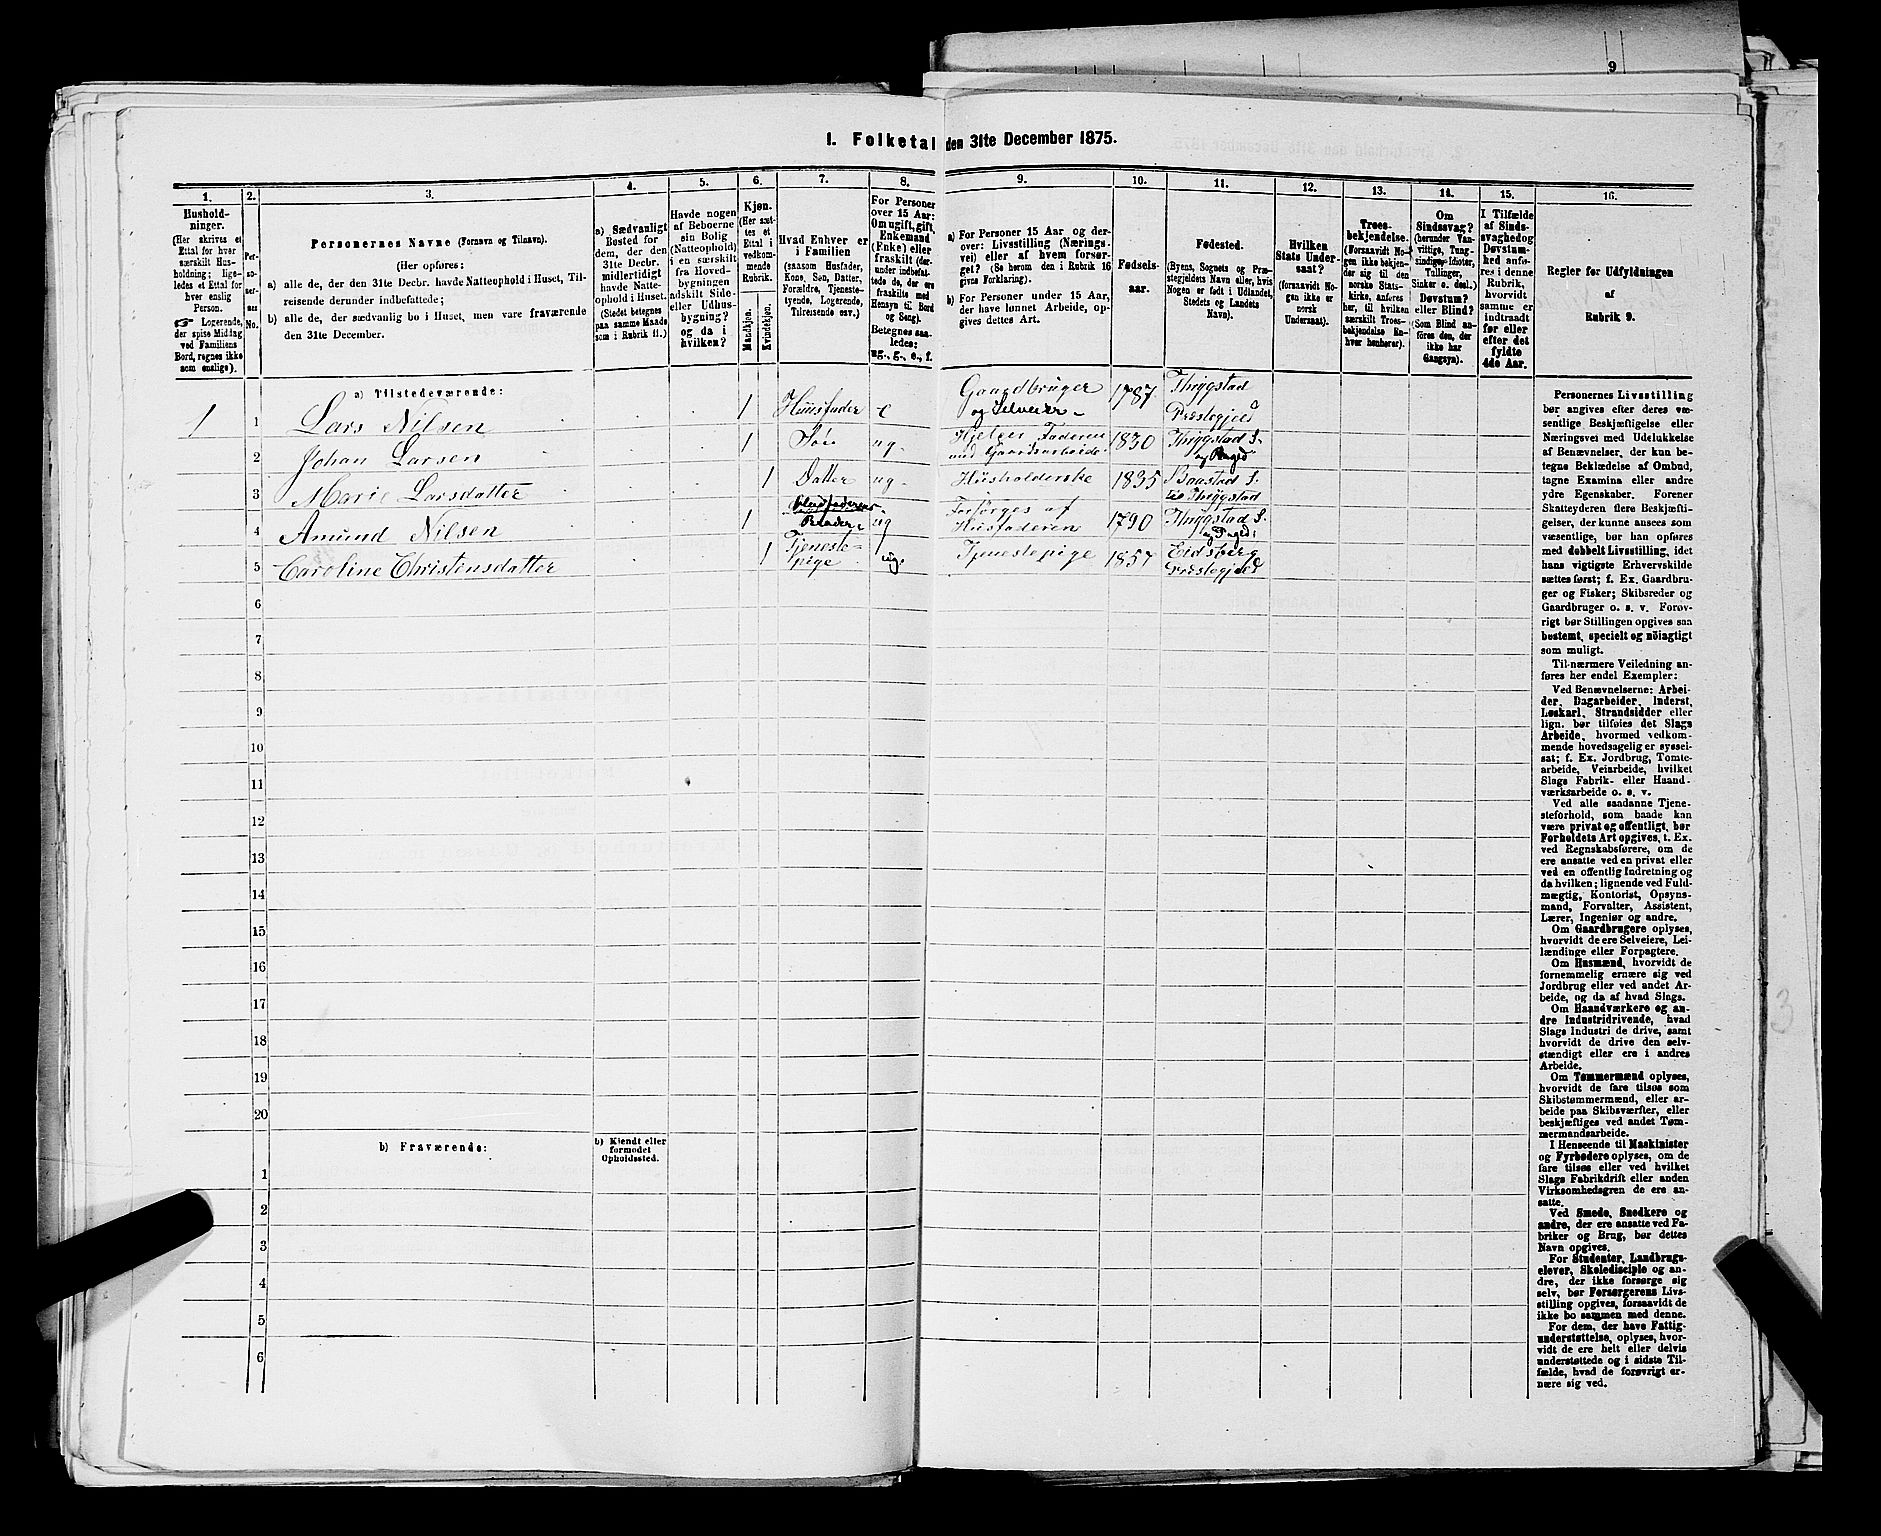 9
I. Folketal den 31te December 1875.
1.
2.
3.
4.
5.
6.
7.
8.
9.
10.
11.
12.
13.
14.
15.
16.
Hushold-
ninger.
(Her skrives et
Ettal for hver
særskilt Hus-
holdning; lige-
ledes et Ettal for
hver enslig
Person.
☞ Logerende,
der spise Middag
ved Familiens
Bord, regnes ikke
som enslige).
Per-
so-
ner-
nes
No.
Personernes Navne (Fornavn og Tilnavn).
(Her opføres:
a) alle de, der den 31te Decbr. havde Natteophold i Huset, Til-
reisende derunder indbefattede;
b) alle de, der sædvanlig bo i Huset, men vare fraværende
den 31te December.
a) Sædvanligt
Bosted for
dem, der den
31te Decbr.
midlertidigt
havde Natte-
ophold i Huset.
(Stedet betegnes
paa samme Maade
som i Rubrik 11.)
Havde nogen
af Beboerne
sin Bolig
(Natteophold)
i en særskilt
fra Hoved-
bygningen
adskilt Side-
eller Udhus-
bygning?
og da i
hvilken?
Kjøn.
(Her sæt-
tes et
Ettal i
vedkom-
mende
Rubrik.
Mandkjøn.
Kvindekjøn.
Hvad Enhver er
i Familien
(saasom Husfader,
Kone, Søn, Datter,
Forældre, Tjeneste-
tyende, Logerende,
Tilreisende osv.)
For Personer
over 15 Aar:
Om ugift, gift,
Enkemand
(Enke) eller
fraskilt (der-
under indbefat-
tede de, der ere
fraskilte med
Hensyn til Bord
og Seng).
Betegnes saa-
ledes:
ug., g., e., f.
a) For Personer 15 Aar og der-
over: Livsstilling (Nærings-
vei) eller af hvem forsør-
get? (Se herom den i Rubrik 16
givne Forklaring).
b) For Personer under 15 Aar,
der have lønnet Arbeide, op-
gives dettes Art.
Fødsels-
aar.
Fødested.
(Byens, Sognets og Præ-
stegjeldets Navn eller, hvis
Nogen er født i Udlandet,
Stedets og Landets
Navn).
Hvilken
Stats Under-
saat?
(forsaavidt No-
gen ikke er
norsk
Undersaat).
Troes-
bekjendelse.
(Forsaavidt No-
gen ikke bekjen-
der sig til den
norske Stats-
kirke, anføres
her, til hvilken
særskilt Troes-
bekjendelse En-
hver henhører).
Om
Sindssvag?
(herunder Van-
vittige, Tung-
sindige, Idioter,
Tullinger,
Sinker o. desl.)
Døvstum?
eller Blind?
(Som Blind an-
føres den, der
ikke har
Gangsyn).
I Tilfælde
af Sinds-
svaghed og
Døvstum-
hed anfø-
res i denne
Rubrik,
hvorvidt
samme er
indtraadt
før eller
efter det
fyldte
4de Aar.
Regler for Udfyldningen
af
Rubrik 9.
a) Tilstedeværende:
1 1 Lars Nilsen 1 Huusfader e Gaardbruger og Selveier 1787. Thrygstad Præstegjeld
2 Johan Larsen 1 Søn ug. Hjelper Faderen med Gaardsarbeide 1830 Thrygstad S. og Præged
3 Marie Larsdatter 1 Datter ug. Husholderske 1835 Baastad S. til Thrygstad
4 Amund Nilsen 1 Husfaderens Broder ug Forsørges af Husfaderen 1790 Thrygstad S. og Præged:
5 Caroline Christensdatter 1 Tjeneste-pige ug. Tjenestepige 1857 Eidsberg Præstegjeld
6
7
8
9
10
11
12
13
14
15
16
17
18
19
20
b) Fraværende:
b) Kjendt eller
formodet
Opholdssted.
1
2
3
4
5
6
Personernes Livsstilling
bør angives efter deres væ-
sentlige Beskjæftigelse eller
Næringsvei med Udelukkelse
af Benævnelser, der kun be-
tegne Beklædelse af Ombud,
tagne Examina eller andre
ydre Egenskaber. Forener
Skatteyderen flere Beskjæfti-
gelser, der kunne ansees som
væsentlige, bør han opføres
med dobbelt Livsstilling, idet
hans vigtigste Erhvervskilde
sættes først; f. Ex. Gaardbru-
ger og Fisker; Skibsreder og
Gaardbruger o. s. v. Forøv-
rigt bør Stillingen opgives saa
bestemt, specielt og nöiagtigt
som muligt.
Til nærmere Veiledning an-
føres her endel Exempler:
Ved Benævnelserne: Arbei-
der, Dagarbeider, Inderst,
Løskarl, Strandsidder eller
lign. bør tilføies det Slags
Arbeide, hvormed vedkom-
mende hovedsagelig er syssel-
sat; f. Ex. Jordbrug, Tomte-
arbeide, Veiarbeide, hvilket
Slags Fabrik- eller Haand-
værksarbeide o. s. v.
Ved alle saadanne Tjene-
steforhold, som baade kan
være privat og offentligt, bør
Forholdets Art opgives, t. Ex.
ved Regnskabsførere, om de
ere ansatte ved en privat eller
ved en offentlig Indretning og
da hvilken; lignende ved Fuld-
mægtig, Kontorist, Opsyns-
mand, Forvalter, Assistent,
Lærer, Ingeniør og andre.
Om Gaardbrugere oplyses,
hvorvidt de ere Selveiere, Lei-
lændinge eller Forpagtere.
Om Husmænd, hvorvidt de
fornemmelig ernære sig ved
Jordbrug eller ved andet Ar-
beide, og da af hvad Slags.
Om Haandværkere og an-
dre Industridrivende, hvad
Slags Industri de drive, samt
hvorvidt de drive den selv-
stændigt eller ere i andres
Arbeide.
Om Tømmermænd oplyses,
hvorvidt de fare tilsøs som
Skibstømmermænd, eller ar-
beide paa Skibsværfter, eller
beskjæftiges ved andet Tøm-
mermandsarbeide.
I Henseende til Maskinister
og Fyrbødere oplyses, om de
fare tilsøs eller ved hvilket
Slags Fabrikdrift eller anden
Virksomhedsgren de ere an-
satte.
Ved Smede, Snedkere og
andre, der ere ansatte ved Fa-
briker og Brug, bør dettes
Navn opgives.
For Studenter, Landbrugs-
elever, Skoledisciple og an-
dre, der ikke forsørge sig
selv, bør Forsørgerens Livs-
stilling opgives, forsaavidt de
ikke bo sammen med denne.
For dem, der have Fattig-
understøttelse, oplyses, hvor-
vidt de ere helt eller delvis
understøttede og i sidste Til-
fælde, hvad de forøvrigt er-
nære sig ved.
3